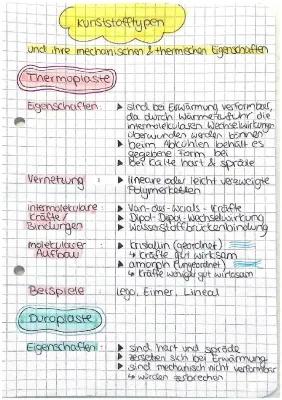 Kunststofftypen
und ihre mechanischen & thermischen Eigenschaften
Thermoplaste
Eigenschaften: ▸ sind bei Erwärmung verformbar,
da durch Wärmezufuhr die
intermolekularen Wechselwirkungen
überwunden werden können
▸ beim Abkühlen behält es
gegebene Form bei
▸ bei Kälte hart & spröde
Vernetzung: ▸ lineare oder leicht verzweigte
Polymerketten
intermolekulare ▸ Van-der-Waals-Kräfte
Kräfte/ ▸ Dipol-Dipol-Wechselwirkung
Bindungen ▸ Wasserstoffbrückenbindung
molekularer ▸ kristallin (geordnet)
Aufbau ↳ Kräfte gut wirksam
▸ amorph (ungeordnet)
↳ Kräfte weniger gut wirksam
Beispiele Lego, Eimer, Lineal
Duroplaste
Eigenschaften: ▸ sind hart und spröde
▸ zersetzen sich bei Erwärmung
▸ sind mechanisch nicht verformbar
↳ würden zerbrechen